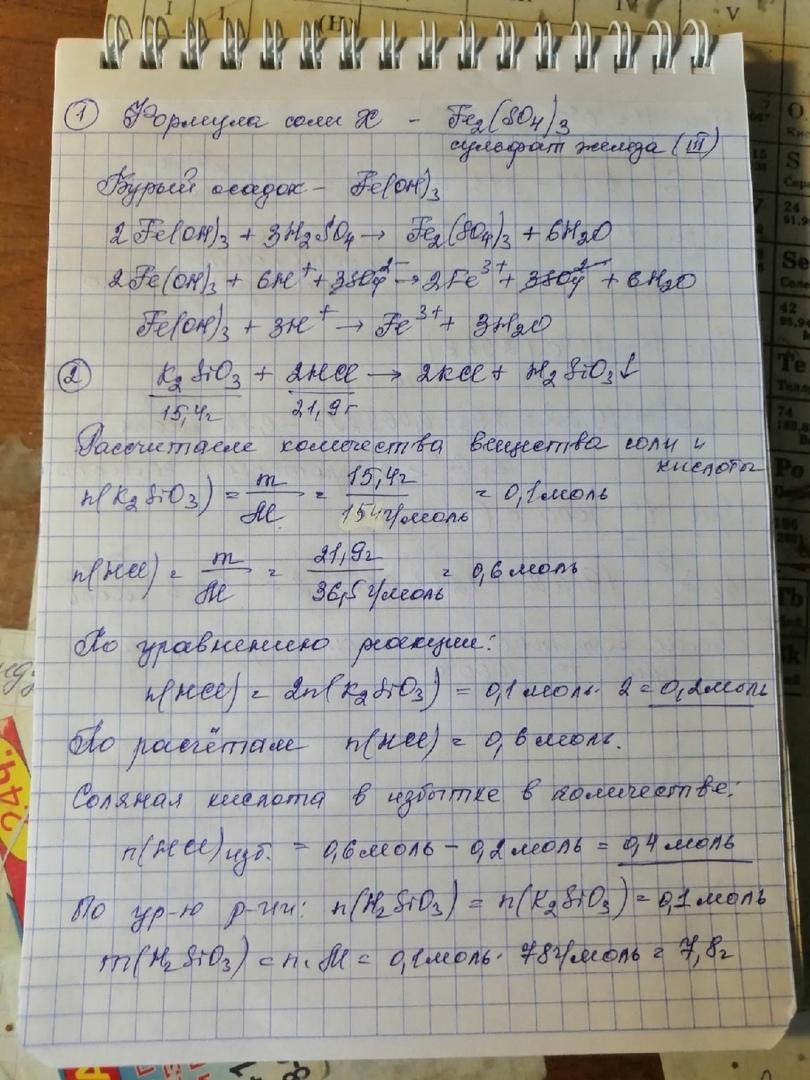 (H)
I
I
IV
V
① Формула соли X - Fe₂(SO₄)₃
сульфат железа (III)
Бурый осадок - Fe(OH)₃
2Fe(OH)₃ + 3H₂SO₄ → Fe₂(SO₄)₃ + 6H₂O
2Fe(OH)₃ + 6H⁺ + 3SO₄²⁻ → 2Fe³⁺ + 3SO₄²⁻ + 6H₂O
Fe(OH)₃ + 3H⁺ → Fe³⁺ + 3H₂O
② K₂SiO₃ + 2HCl → 2KCl + H₂SiO₃↓
15,4г 21,9г
Рассчитаем количества вещества соли и
кислоты
n(K₂SiO₃) = m/M = 15,4г/154г/моль = 0,1моль
n(HCl) = m/M = 21,9г/36,5г/моль = 0,6моль
По уравнению реакции:
n(HCl) = 2n(K₂SiO₃) = 0,1моль · 2 = 0,2моль
По расчётам n(HCl) = 0,6моль.
Соляная кислота в избытке в количестве:
n(HCl)изб. = 0,6моль - 0,2моль = 0,4моль
По ур-ю р-ии: n(H₂SiO₃) = n(K₂SiO₃) = 0,1моль
m(H₂SiO₃) = n·M = 0,1моль · 78г/моль = 7,8г
O
S
24
Se
42
Te
74
Po
106
24Ч.